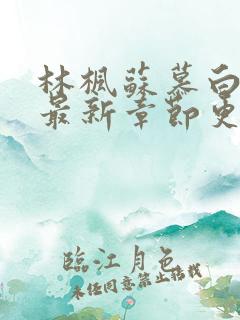 林楓蘇慕白
最新章節更
臨江月色
未經同意禁止轉載